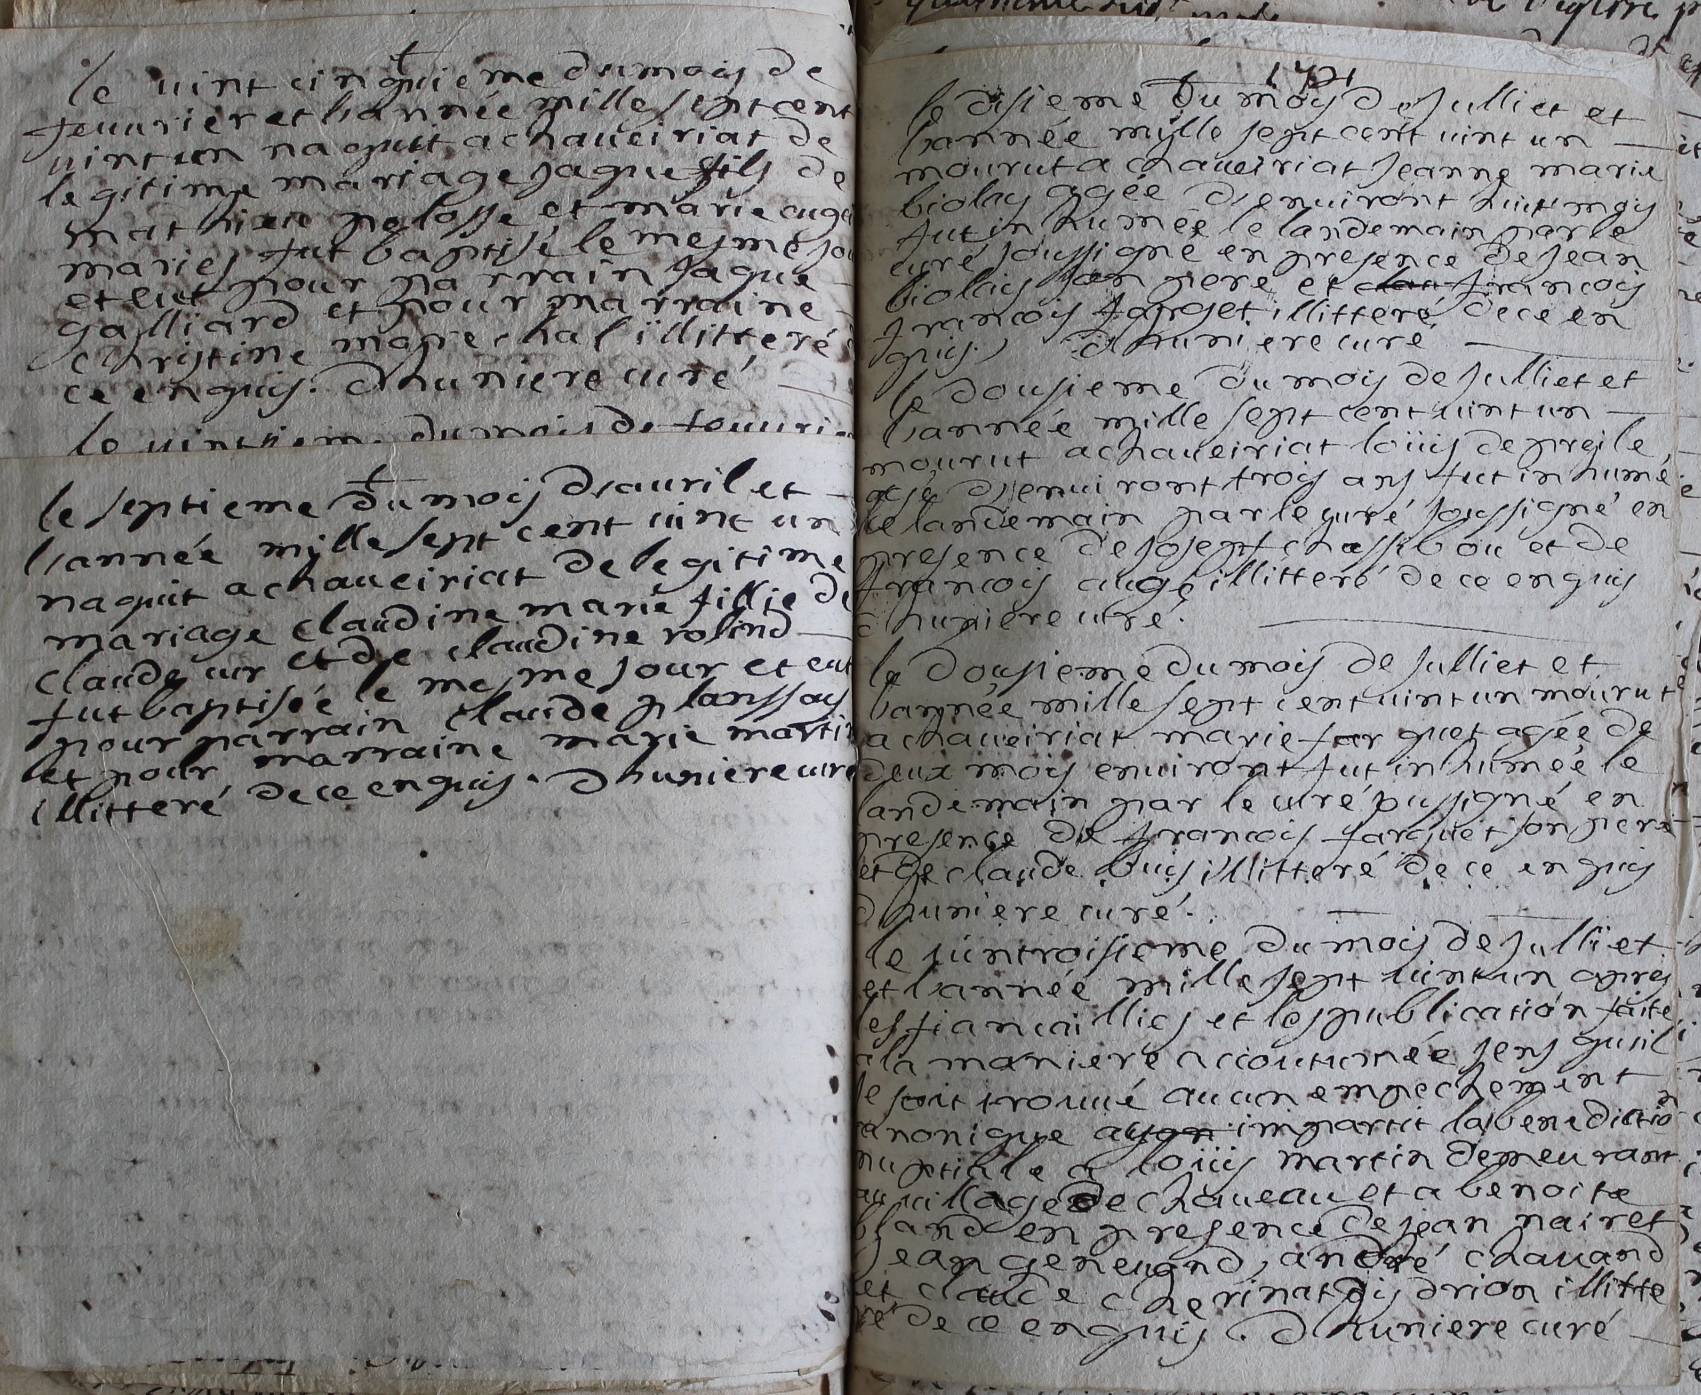 le uint cinquieme du mois de
feuurier et l'année mille sept cent
uint un naquit a chaueiriat de
legitime mariage jaque fils de
mathieu pelosse et marie auge
mariés fut baptisé le mesme jou
et eut pour parrain jaque
galliard et pour marraine
christine marechal illitteré
ce enquis. Dhuniere curé
le uint du mois de feuurie
le septieme du mois d'auril et
l'année mille sept cent uint un
naquit a chaueiriat de legitime
mariage claudine marie fillie de
claude uir et de claudine rolind
fut baptisée le mesme jour et eut
pour parrain claude planssoy
et pour marraine marie martin
illitteré de ce enquis. Dhuniere curé
1721
le disieme du mois de julliet et
l'année mille sept cent uint un
mourut a chaueiriat jeanne marie
biolay agée d'enuiront huit moys
fut inhumée le landemain par le
curé soussigné en presence de jean
biolay son pere et francois
francois farget illitteré de ce en
quis. Dhuniere curé
le dousieme du mois de julliet et
l'année mille sept cent uint un
mourut a chaueiriat loüis depreile
agé d'enuiront trois ans fut inhumé
le landemain par le curé soussigné en
presence de josept chassibou et de
francois auge illitteré de ce enquis
Dhuniere curé.
le dousieme du mois de julliet et
l'année mille sept cent uint un mourut
a chaueiriat marie farguet agée de
deux mois enuiront fut inhumée le
landemain par le curé soussigné en
presence de francois farguet son pere
et de claude buis illitteré de ce enquis
Dhuniere curé.
le uintroisieme du mois de julliet
et l'année mille sept uint un apres
les fiancaillies et les publication faite
a la maniere accoutumée sens qu'il
se soit trouué aucun empechement
canonique ay impartit la benedictio
nuptiale a loüis martin demeurant
au uillage de chaueau et a benoite
bland en presence de jean nairet
jean geneugnd, andré chauand
et claude cherinat dis drion illitte
ré de ce enquis. Dhuniere curé